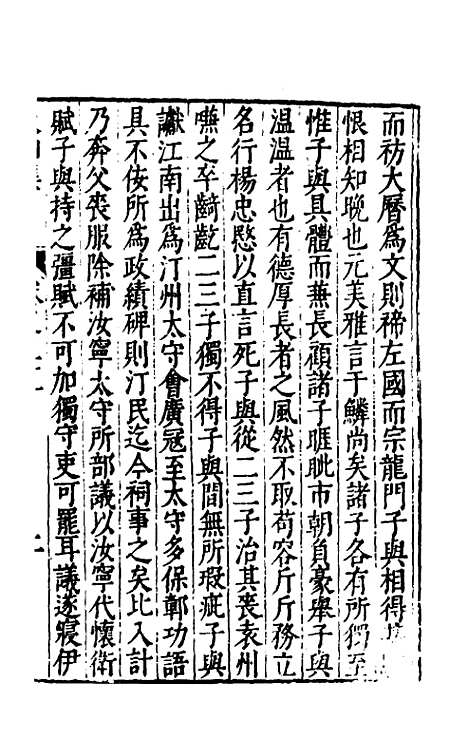 而祊大曆為文則禘左國而宗龍門子與相得
恨相知晚也元美雅言于鱗尚矣諸子各有所獨至
惟子與具體而兼長顧諸子睚眦市朝負豪舉子與
溫溫者也有德厚長者之風然不取苟容斤斤務立
名行楊忠愍以直言死子與從二三子治其喪袁州
嗛之卒齮齕二三子獨不得子與間無所瑕疵子與
讞江南出為汀州太守會廣寇至太守多保鄣功語
具不佞所為政績碑則汀民迄今祠事之矣比入計
乃奔父喪服除補汝寧太守所部議以汝寧代懷衛
賦子與持之彊賦不可加獨守吏可罷耳議遂寢伊